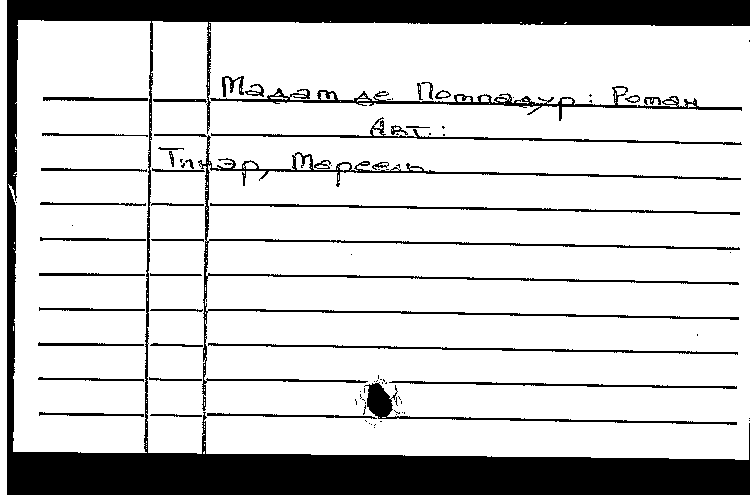 Мадам де Помпадур: Роман
Авт.:
Тинэр, Марсель.